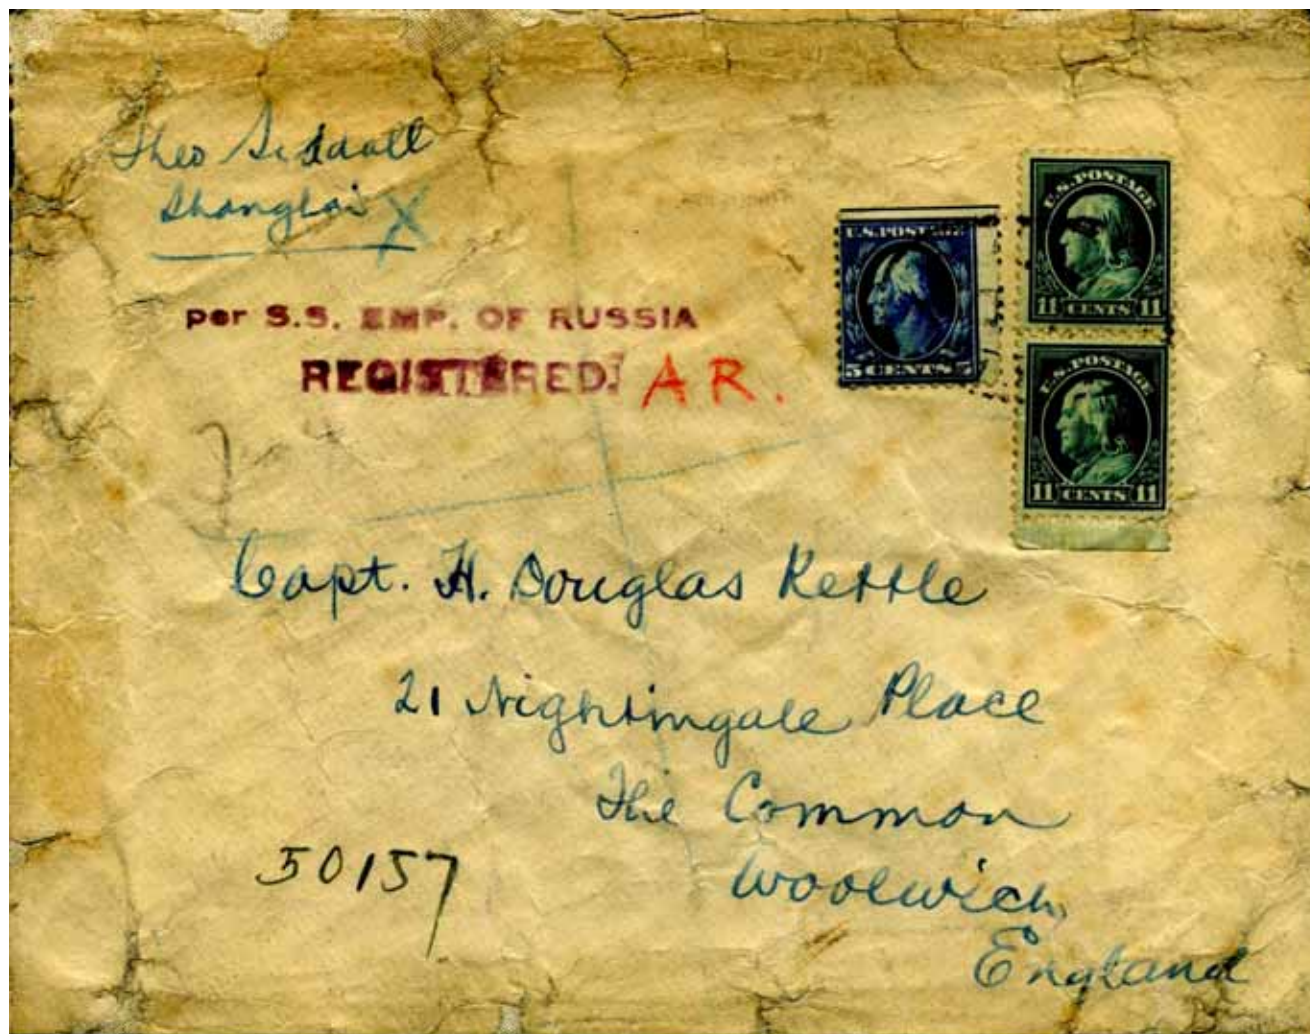 Theo Siddall
Shanghai X
per S.S. EMP. OF RUSSIA
REGISTERED. A R.
U.S. POSTAGE
5 CENTS 5
U.S. POSTAGE
11 CENTS 11
U.S. POSTAGE
11 CENTS 11
Capt. H. Douglas Kettle
21 Nightingale Place
The Common
50157
Woolwich,
England